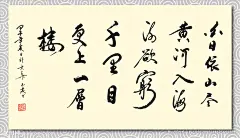 白日依山尽
黄河入海
流欲窮
千里目
更上一層
樓